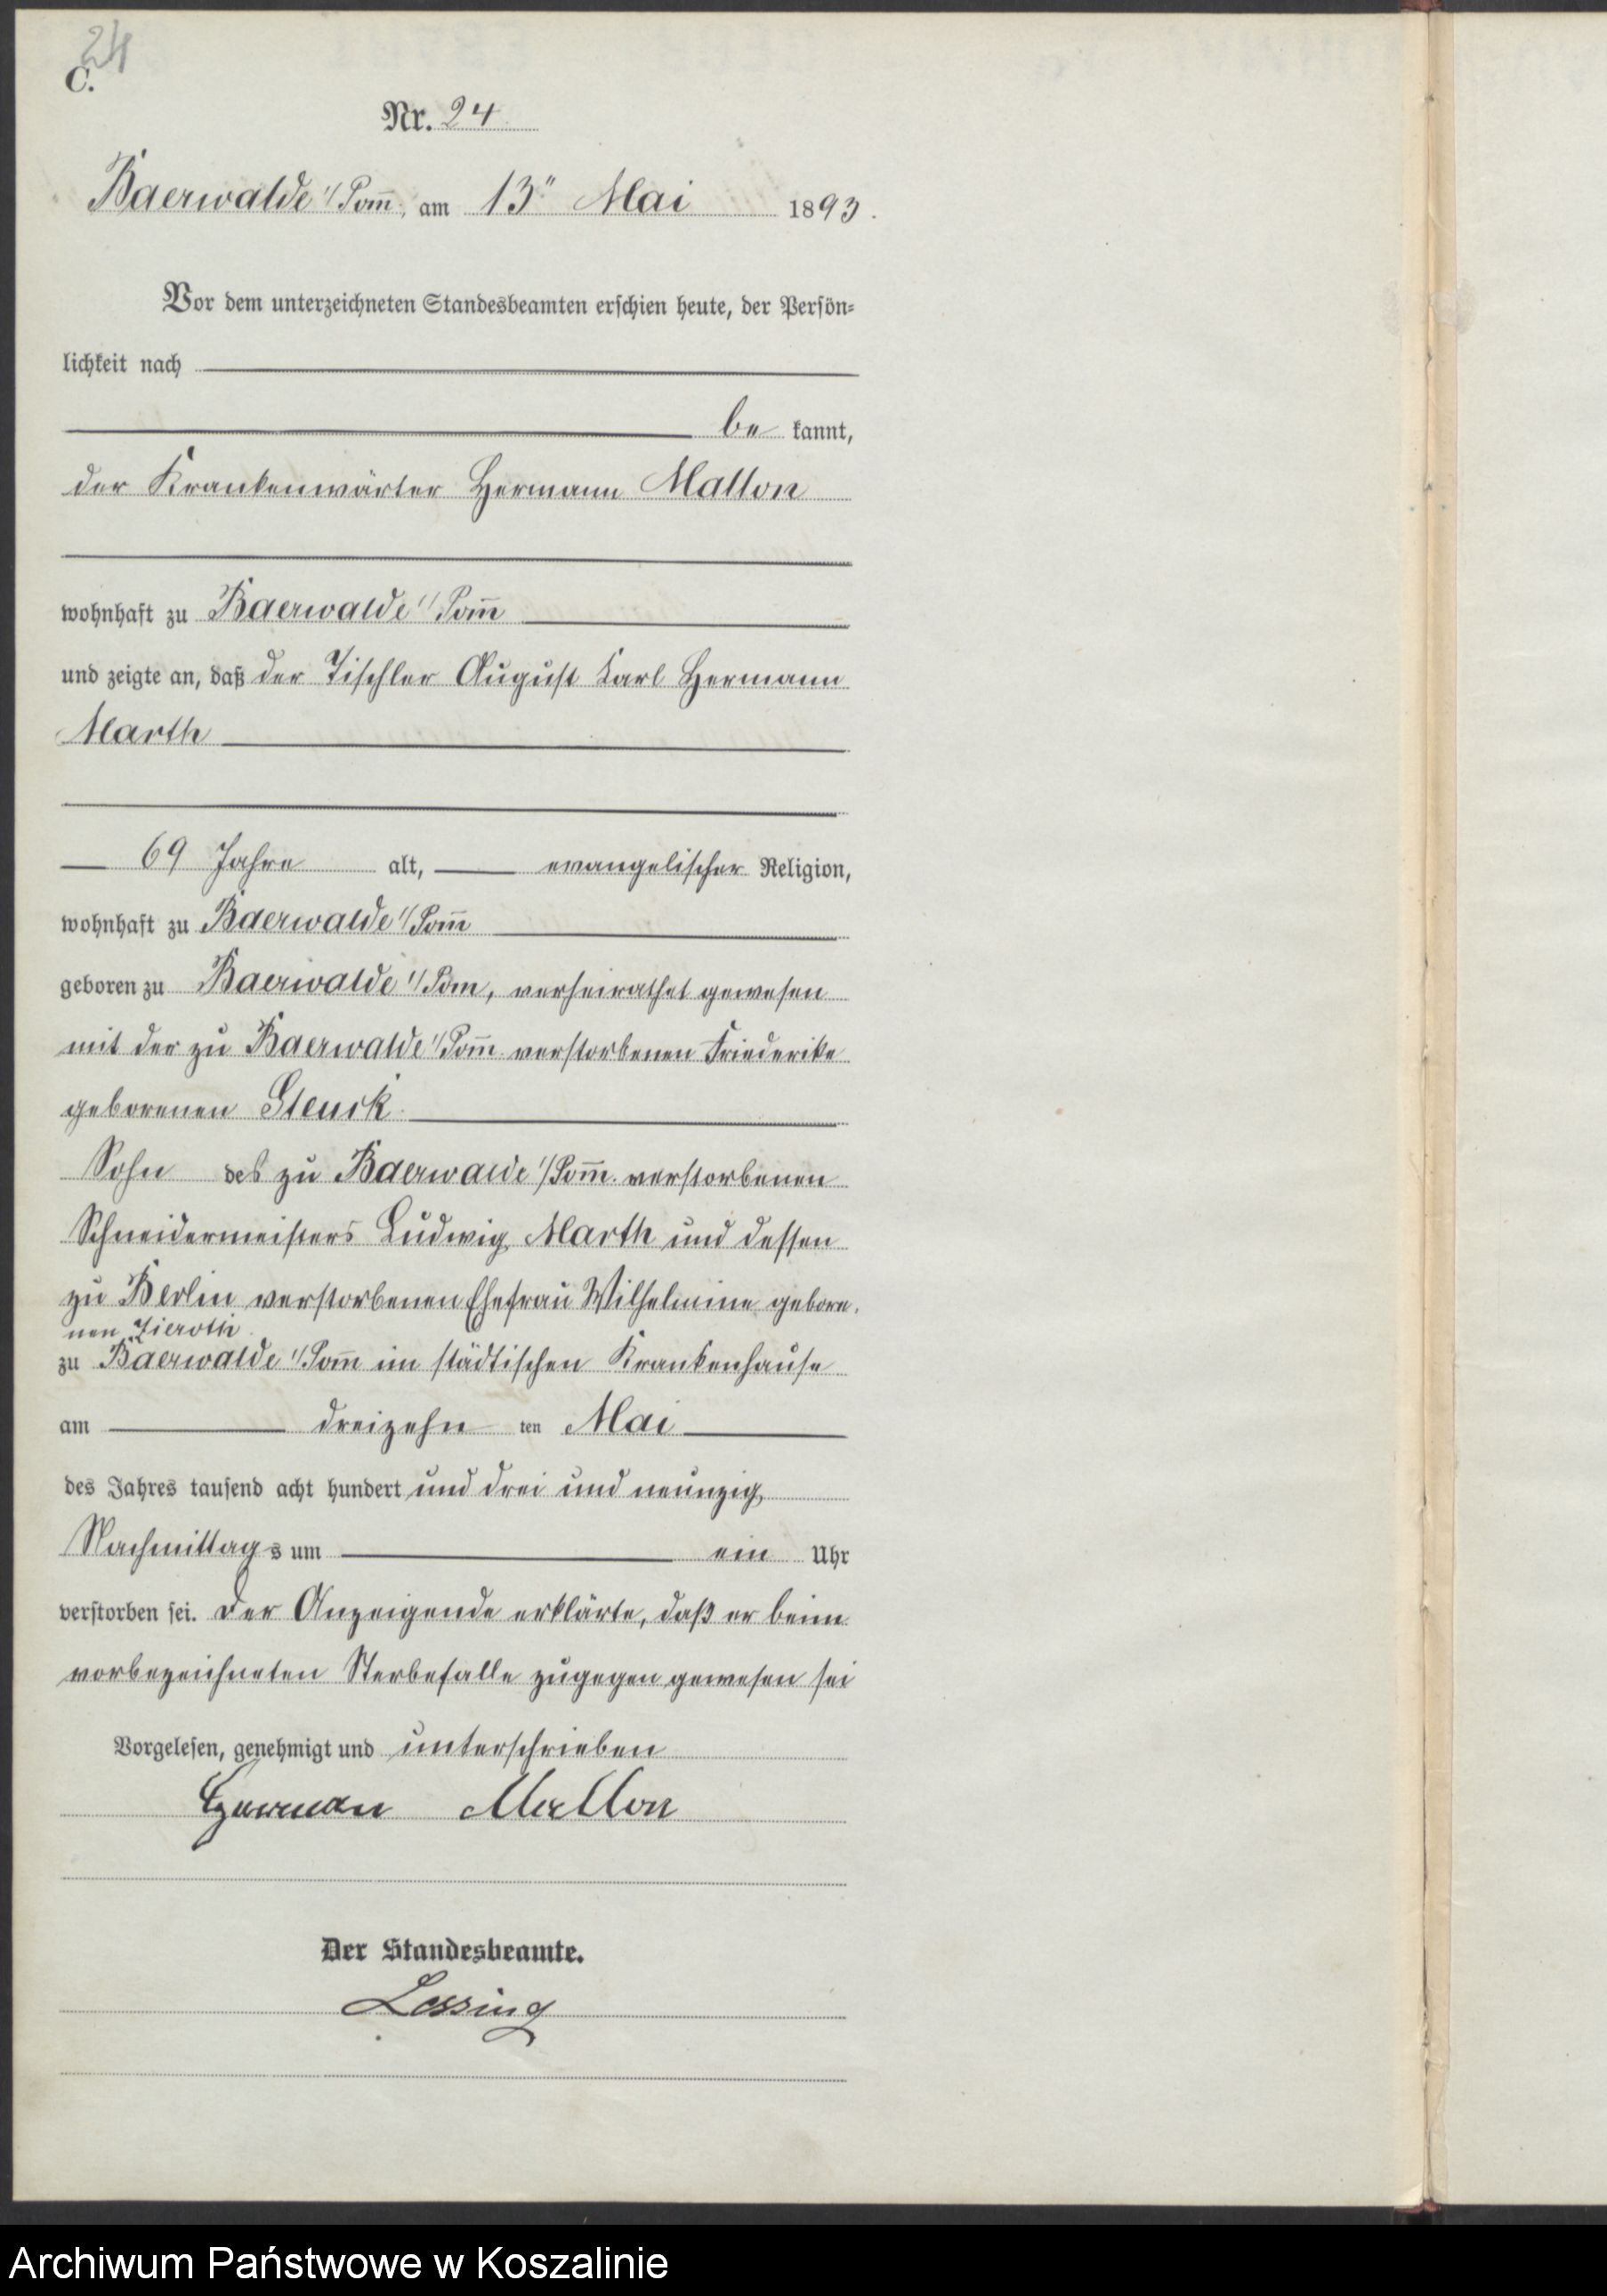 24
C.
Nr. 24
Baerwalde i/Pom̅, am 13ten Mai 1893.
Vor dem unterzeichneten Standesbeamten erschien heute, der Persön-
lichkeit nach
be kannt,
der Krankenwärter Hermann Mallon
wohnhaft zu Baerwalde i/Pom̅
und zeigte an, daß der Tischler August Karl Hermann
Marth
69 Jahre alt, evangelischer Religion,
wohnhaft zu Baerwalde i/Pom̅
geboren zu Baerwalde i/Pom, verheirathet gewesen
mit der zu Baerwalde i/Pom̅ verstorbenen Friederike
geborenen
Sohn des zu Baerwalde i/Pom̅. verstorbenen
Schneidermeisters Ludwig Marth und dessen
zu Berlin verstorbenen Ehefrau Wilhelmine gebore-
nen Zieroth
zu Baerwalde i/Pom̅ im städtischen Krankenhause
am dreizehn ten Mai
des Jahres tausend acht hundert und drei und neunzig
Nachmittags um ein Uhr
verstorben sei. Der Anzeigende erklärte, daß er beim
vorbezeichneten Sterbefalle zugegen gewesen sei
Vorgelesen, genehmigt und unterschrieben
Herman Mallon
Der Standesbeamte.
Lessing
Archiwum Państwowe w Koszalinie